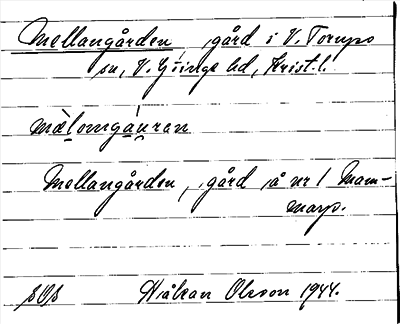 Mellangården, gård i V. Torups
sn, V. Göinge hd, Krist. l.
mæ̀l̥omgáu̯ran
Mellangården, gård å nr 1 Mam-
marp.
Håkan Olsson 1944.